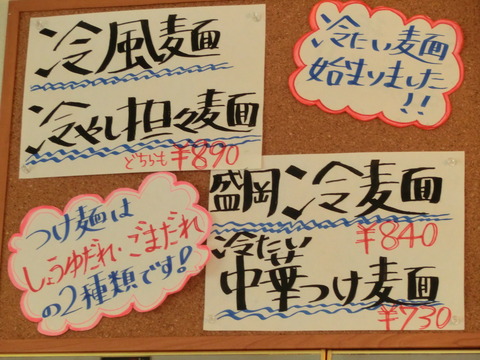 冷風麺
冷やし担々麺
どちらも ¥890
冷たい麺
始まりました
!!
つけ麺は
しょうゆだれ・ごまだれ
の2種類です!
盛岡冷麺
¥840
冷たい
中華つけ麺
¥730